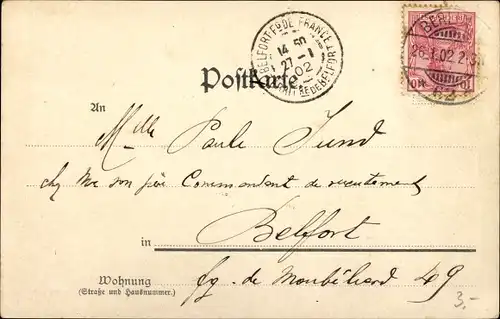 BELFORT FG DE FRANCE
14 50
27 - 1
02
DE BELFORT
26.1.02
Postkarte
An
Mlle Paule Jund
chez Mr son père Commandant de recrutement
in Belfort
Wohnung
(Straße und Hausnummer.)
fg. de Montbéliard 49
3,-